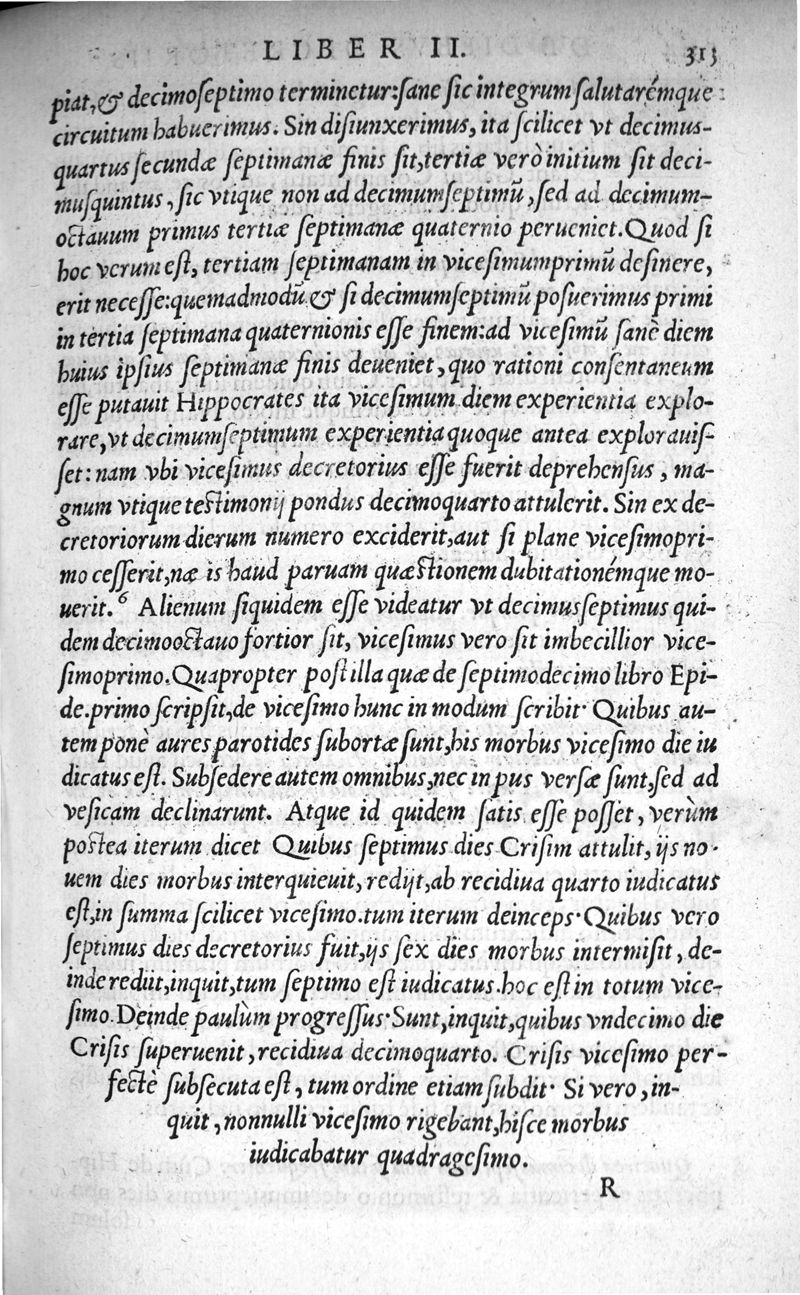 LIBER II. 313
piat, & decimoſeptimo terminetur: ſane ſic integrum ſalutarémque
circuitum habuerimus. Sin diſiunxerimus, ita ſcilicet vt decimus-
quartus ſecundæ ſeptimanæ finis ſit, tertiæ verò initium ſit deci-
muſquintus, ſic vtique non ad decimumſeptimū, ſed ad decimum-
octauum primus tertiæ ſeptimanæ quaternio perueniet. Quod ſi
hoc verum eſt, tertiam ſeptimanam in viceſimumprimū deſinere,
erit neceſſe: quemadmodū & ſi decimumſeptimū poſuerimus primi
in tertia ſeptimana quaternionis eſſe finem: ad viceſimū ſanè diem
huius ipſius ſeptimanæ finis deueniet, quo rationi conſentaneum
eſſe putauit Hippocrates ita viceſimum diem experientia explo-
rare, vt decimumſeptimum experientia quoque antea explorauiſ-
ſet: nam vbi viceſimus decretorius eſſe fuerit deprehenſus, ma-
gnum vtique teſtimonij pondus decimoquarto attulerit. Sin ex de-
cretoriorum dierum numero exciderit, aut ſi plane viceſimopri-
mo ceſſerit, næ is haud paruam quæſtionem dubitationémque mo-
uerit. 6 Alienum ſiquidem eſſe videatur vt decimusſeptimus qui-
dem decimooctauo fortior ſit, viceſimus vero ſit imbecillior vice-
ſimoprimo. Quapropter poſt illa quæ de ſeptimodecimo libro Epi-
de. primo ſcripſit, de viceſimo hunc in modum ſcribit· Quibus au-
tem ponè aures parotides ſubortæ ſunt, his morbus viceſimo die iu
dicatus eſt. Subſedere autem omnibus, nec in pus verſæ ſunt, ſed ad
veſicam declinarunt. Atque id quidem ſatis eſſe poſſet, verùm
poſtea iterum dicet Quibus ſeptimus dies Criſim attulit, ijs no-
uem dies morbus interquieuit, redijt, ab recidiua quarto iudicatus
eſt, in ſumma ſcilicet viceſimo. tum iterum deinceps· Quibus vero
ſeptimus dies decretorius fuit, ijs ſex dies morbus intermiſit, de-
inde rediit, inquit, tum ſeptimo eſt iudicatus. hoc eſt in totum vice-
ſimo. Deinde paulùm progreſſus· Sunt, inquit, quibus vndecimo die
Criſis ſuperuenit, recidiua decimoquarto. Criſis viceſimo per-
fectè ſubſecuta eſt, tum ordine etiam ſubdit· Si vero, in-
quit, nonnulli viceſimo rigebant, hiſce morbus
iudicabatur quadrageſimo.
R